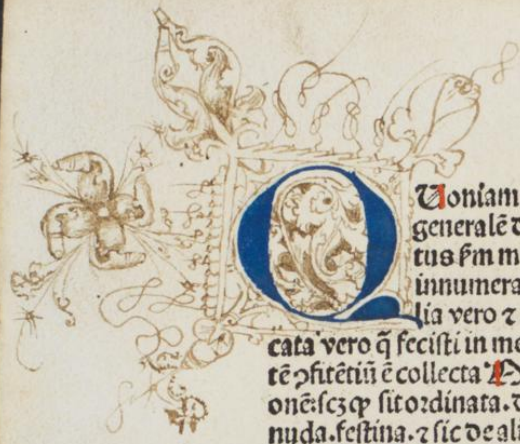 QUoniam
generalē
tus ẜm m
innumera
lia vero ⁊
cata vero q̄ fecisti in me
tē ꝯfitētiū ē collecta
onē: scꝫ ꝙ sit ordinata.
nuda. festina. ⁊ sic de al